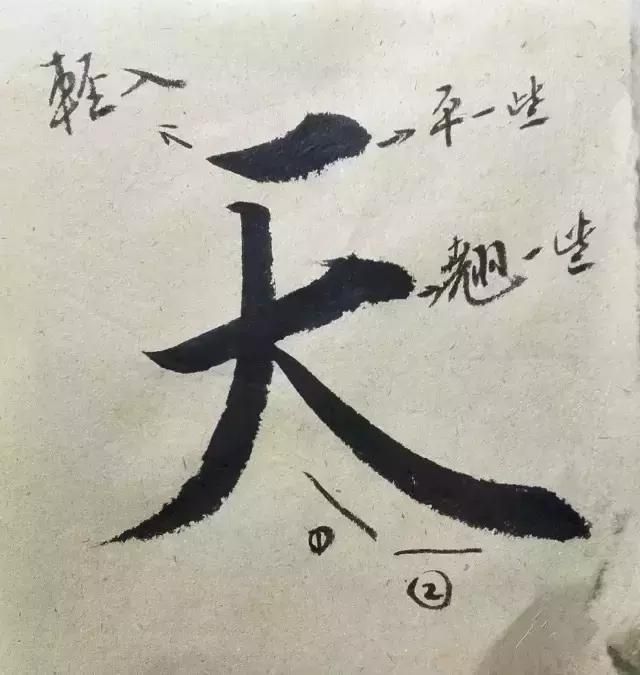 輕入
平一些
天
翹一些
①
②